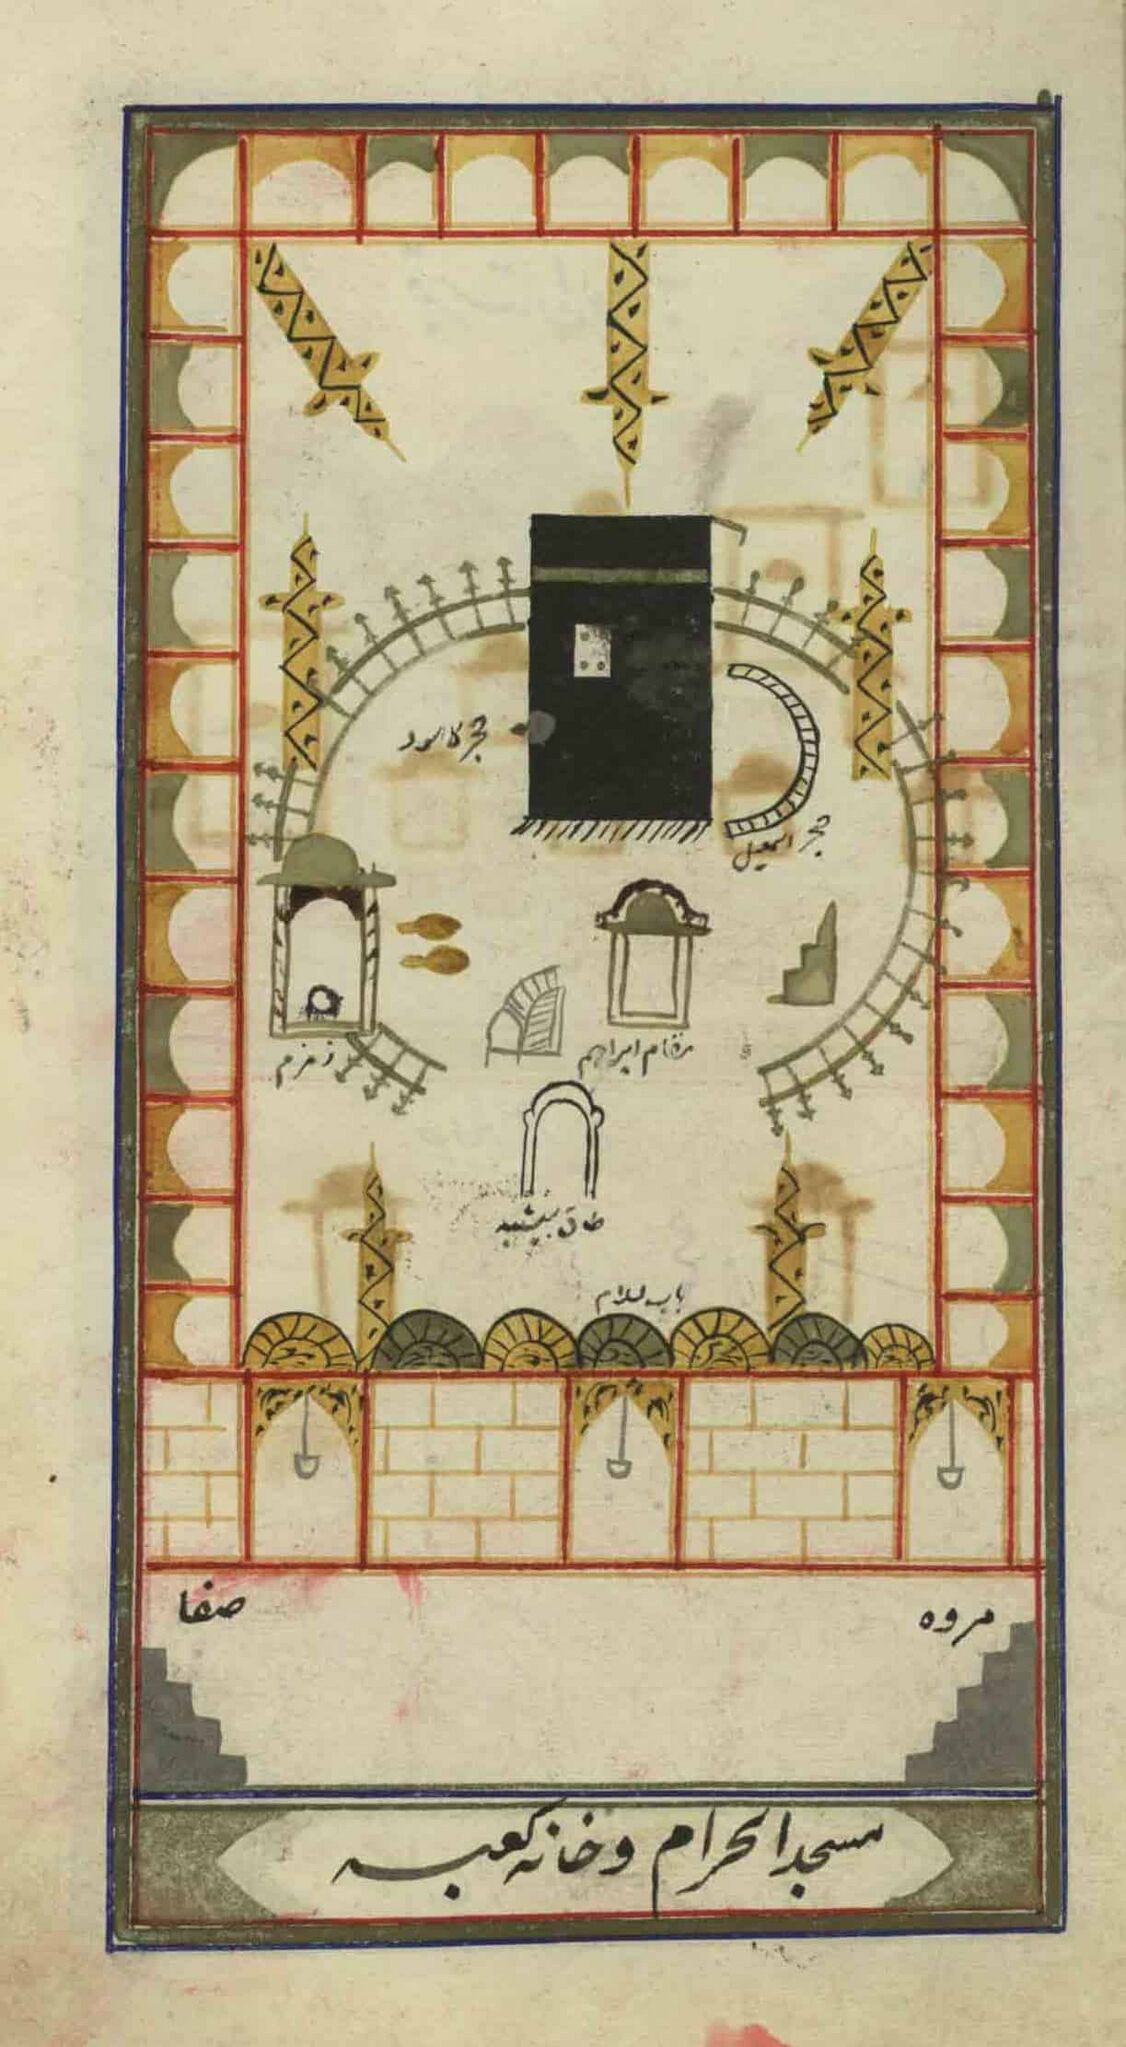 حجر الاسود
حجر اسمعیل
مقام ابراهیم
زمزم
طاق
باب السلام
صفا
مروه
مسجد الحرام و خانه کعبه